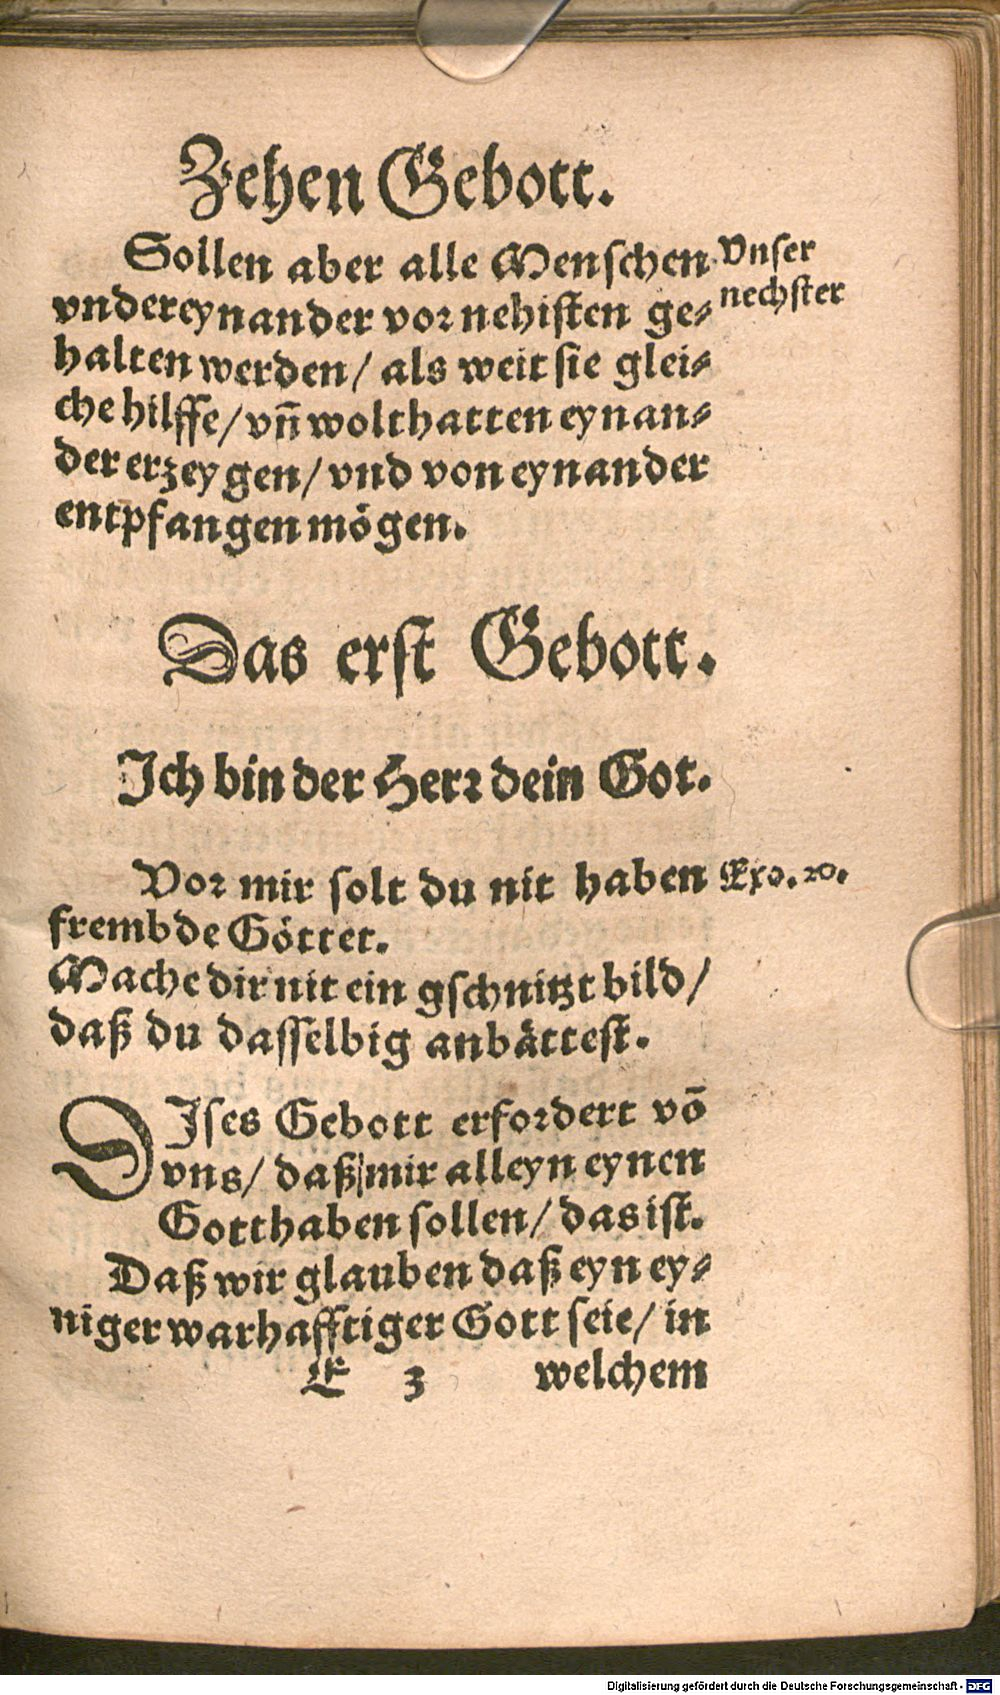 Zehen Gebott.
Sollen aber alle Menschen
vndereynander vor nehisten ge-
halten werden / als weit sie glei-
che hilffe / vñ wolthatten eynan-
der erzeygen / vnd von eynander
entpfangen mögen.
Vnser
nechster
Das erst Gebott.
Ich bin der Herr dein Got.
Vor mir solt du nit haben
frembde Götter.
Exo. 20.
Mache dir nit ein gschnitzt bild /
daß du dasselbig anbättest.
DIses Gebott erfordert võ
vns / daß mir alleyn eynen
Gott haben sollen / das ist.
Daß wir glauben daß eyn ey-
niger warhafftiger Gott seie / in
E 3 welchem
Digitalisierung gefördert durch die Deutsche Forschungsgemeinschaft - DFG